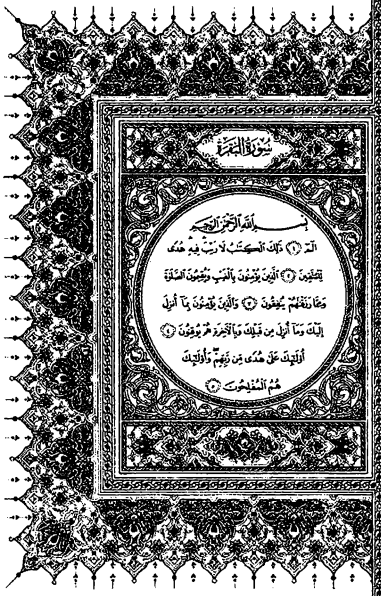 سُورَةُ البَقَرَةِ
بِسْمِ اللَّهِ الرَّحْمَٰنِ الرَّحِيمِ
الٓمٓ ١ ذَٰلِكَ الْكِتَٰبُ لَا رَيْبَ فِيهِ هُدًى
لِّلْمُتَّقِينَ ٢ الَّذِينَ يُؤْمِنُونَ بِالْغَيْبِ وَيُقِيمُونَ الصَّلَوٰةَ
وَمِمَّا رَزَقْنَٰهُمْ يُنفِقُونَ ٣ وَالَّذِينَ يُؤْمِنُونَ بِمَآ أُنزِلَ
إِلَيْكَ وَمَآ أُنزِلَ مِن قَبْلِكَ وَبِالْءَاخِرَةِ هُمْ يُوقِنُونَ ٤
أُولَٰٓئِكَ عَلَىٰ هُدًى مِّن رَّبِّهِمْ وَأُولَٰٓئِكَ
هُمُ الْمُفْلِحُونَ ٥